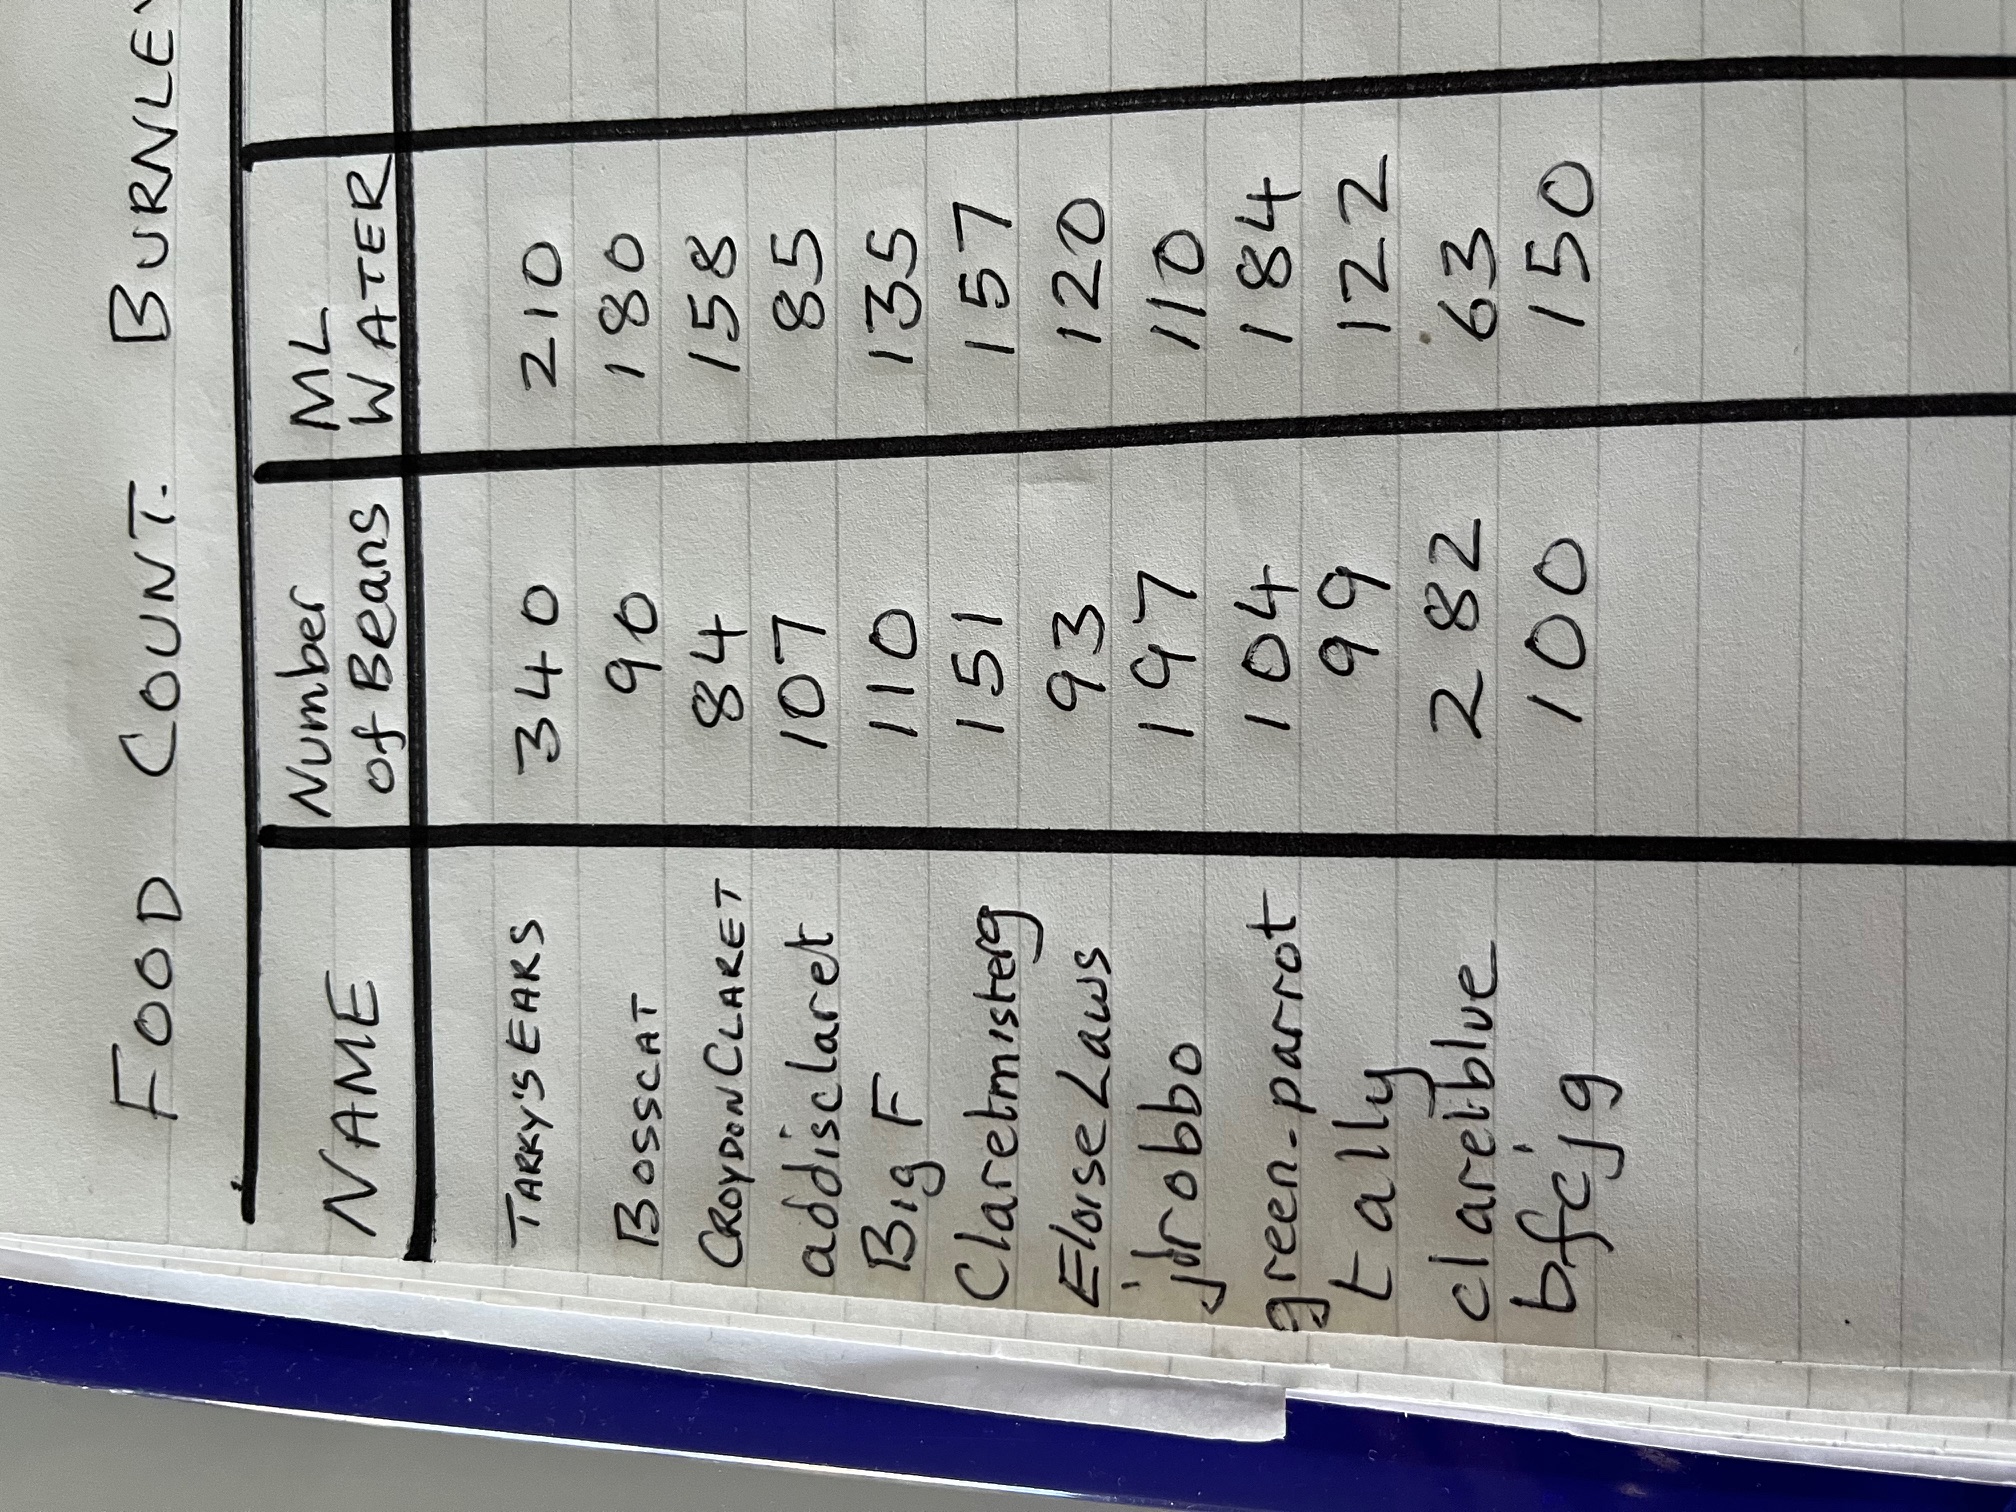 FOOD COUNT. BURNLEY
NAME Number of Beans ML WATER
TARKY'SEARS 340 210
BOSSCAT 90 180
CROYDONCLARET 84 158
addisclaret 107 85
BIG F 110 135
Claretmisterg 151 157
Eloise Laws 93 120
jdrobbo 197 110
green-parrot 104 184
tally 99 122
claretblue 282 63
bfcjg 100 150